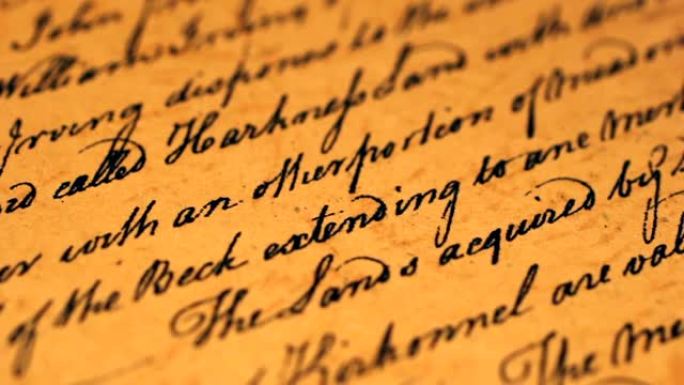 John
William Irving
Irving dispones to the
called Harkness Land with
with an other portion of meadow
of the Beck extending to one
The Lands acquired by
Kirkonnel are val
The me